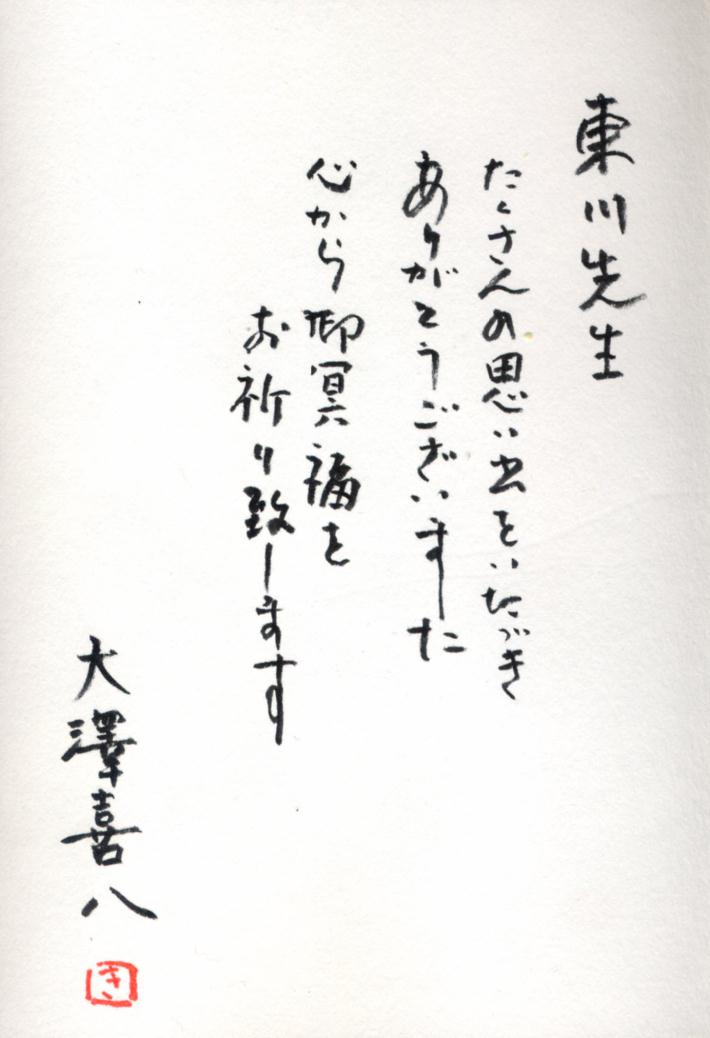 東川先生
たくさんの思い出をいただき
ありがとうございました
心から御冥福を
お祈り致します
大澤喜八
き